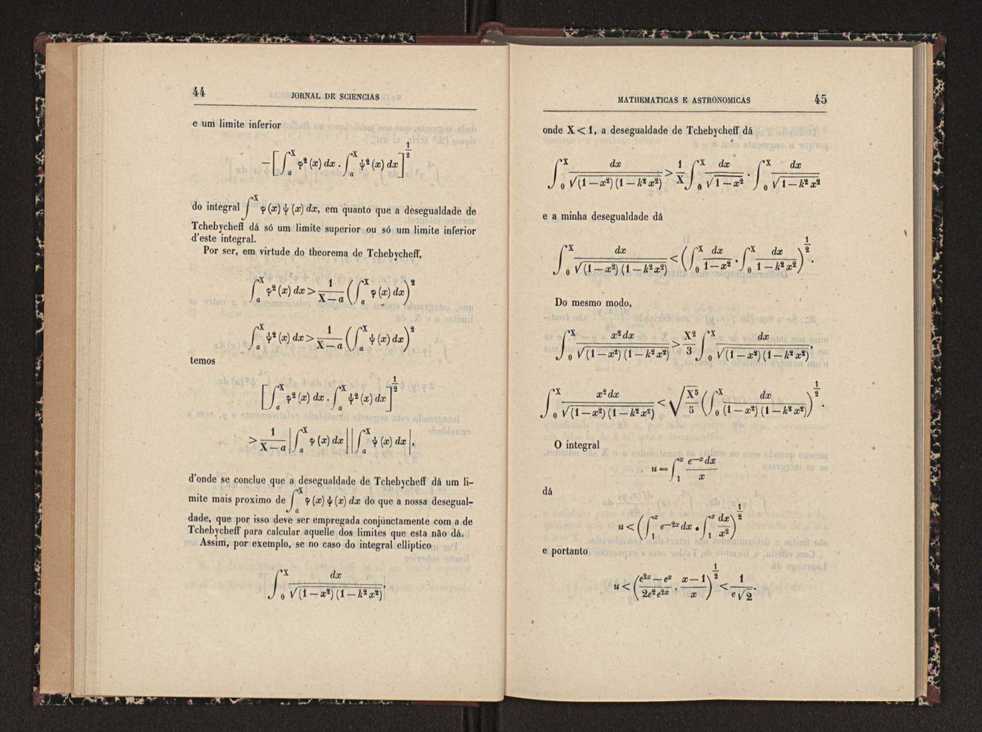 44
JORNAL DE SCIENCIAS
e um limite inferior
−[∫ₐˣ φ² (x) dx . ∫ₐˣ ψ² (x) dx]^{1/2}
do integral ∫ₐˣ φ (x) ψ (x) dx, em quanto que a desegualdade de
Tchebycheff dá só um limite superior ou só um limite inferior
d'este integral.
Por ser, em virtude do theorema de Tchebycheff,
∫ₐˣ φ² (x) dx > 1/(X − a) (∫ₐˣ φ (x) dx)²
∫ₐˣ ψ² (x) dx > 1/(X − a) (∫ₐˣ ψ (x) dx)²
temos
[∫ₐˣ φ² (x) dx . ∫ₐˣ ψ² (x) dx]^{1/2}
> 1/(X − a) |∫ₐˣ φ (x) dx| |∫ₐˣ ψ (x) dx|,
d'onde se conclue que a desegualdade de Tchebycheff dá um li-
mite mais proximo de ∫ₐˣ φ (x) ψ (x) dx do que a nossa desegual-
dade, que por isso deve ser empregada conjunctamente com a de
Tchebycheff para calcular aquelle dos limites que esta não dá.
Assim, por exemplo, se no caso do integral elliptico
∫₀ˣ dx/√((1 − x²) (1 − k² x²)),
MATHEMATICAS E ASTRONOMICAS
45
onde X < 1, a desegualdade de Tchebycheff dá
∫₀ˣ dx/√((1 − x²) (1 − k² x²)) > 1/X ∫₀ˣ dx/√(1 − x²) . ∫₀ˣ dx/√(1 − k² x²)
e a minha desegualdade dá
∫₀ˣ dx/√((1 − x²) (1 − k² x²)) < (∫₀ˣ dx/(1 − x²) . ∫₀ˣ dx/(1 − k² x²))^{1/2}.
Do mesmo modo,
∫₀ˣ x² dx/√((1 − x²) (1 − k² x²)) > X²/3 ∫₀ˣ dx/√((1 − x²) (1 − k² x²)),
∫₀ˣ x² dx/√((1 − x²) (1 − k² x²)) < √(X⁵/5) (∫₀ˣ dx/((1 − x²) (1 − k² x²)))^{1/2}.
O integral
u = ∫₁ˣ e^{−x} dx/x
dá
u < (∫₁ˣ e^{−2x} dx . ∫₁ˣ dx/x²)^{1/2}
e portanto
u < ((e^{2x} − e²)/(2e² e^{2x}) . (x − 1)/x)^{1/2} < 1/(e√2).